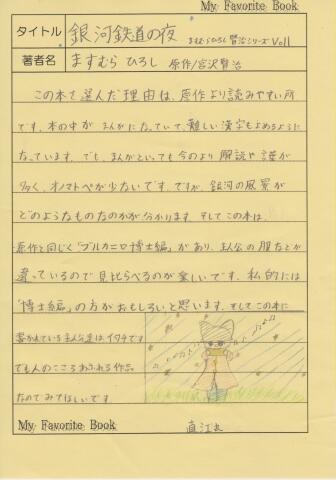 My Favorite Book
タイトル 銀河鉄道の夜 ますむらひろし 賢治シリーズ Vol1
著者名 ますむら ひろし 原作/宮沢賢治
この本を選んだ理由は、原作より読みやすい所
です。本の中が まんがになっていて、難しい漢字もよめるように
なっています。でも、まんがといっても今のより 解説や謎が
多く、オノマトペが少ないです。ですが、銀河の風景が
どのようなものなのかが分かります。そしてこの本は、
原作と同じく「ブルカニロ博士編」があり、主人公の服などが
違っているので見比らべるのが楽しいです。私的には
「博士編」の方がおもしろいと思います。そしてこの本に
書かれている主人公達は、イタチです
でも人のこころあふれる作品
なのでみてほしいです
My Favorite Book